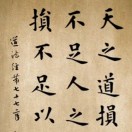 天之道損
不足人之
損不足以
道德經第七十七章